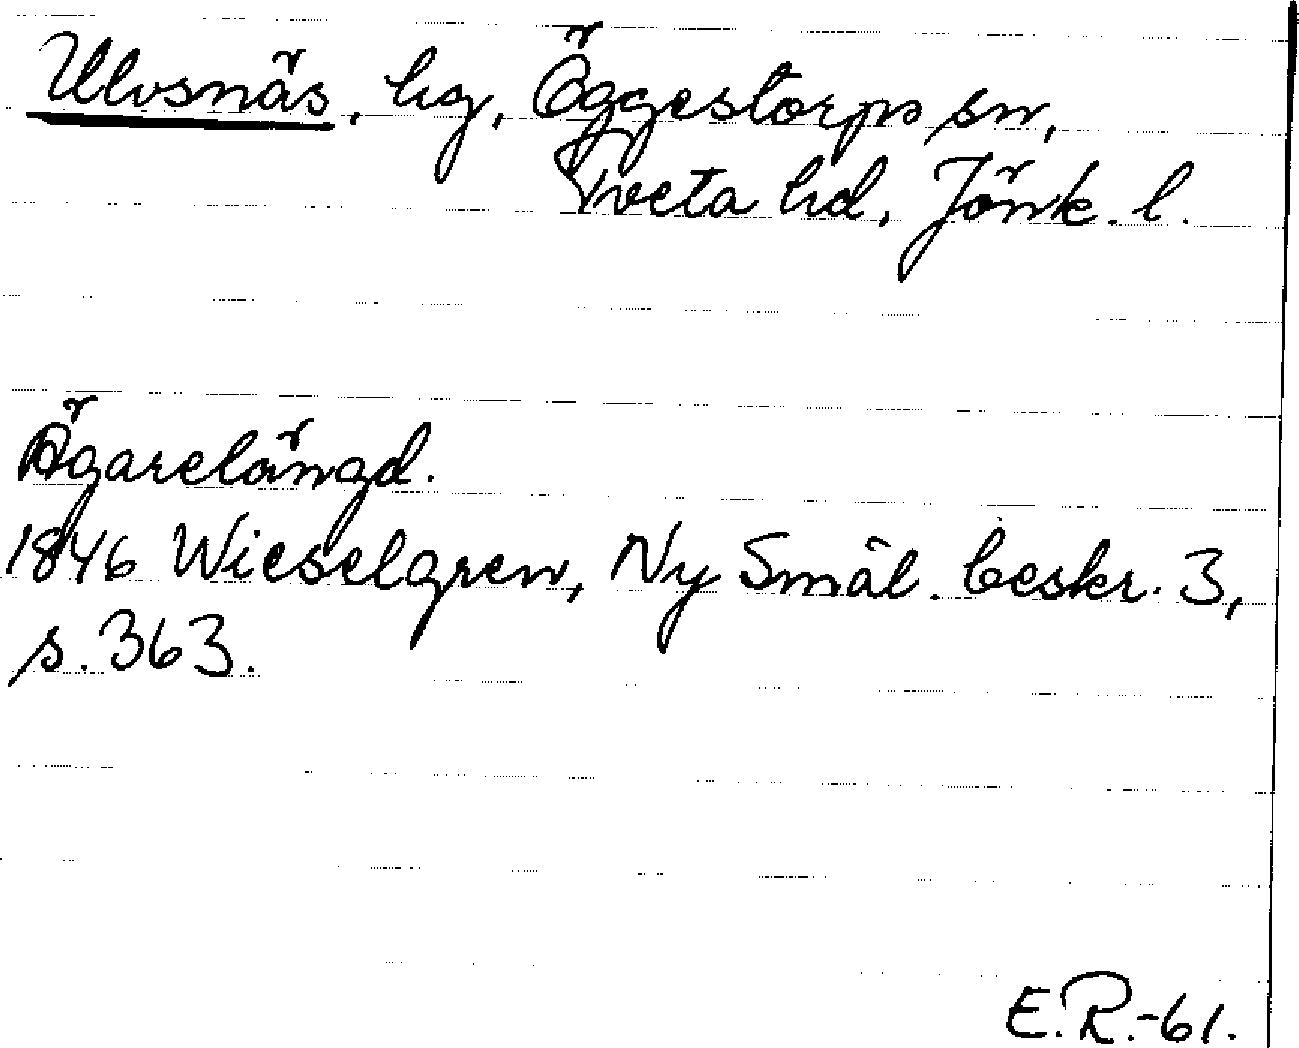 Ulvsnäs, hg, Öggestorps sn,
Tveta hd, Jönk. l.
Ägarelängd.
1846 Wieselgren, Ny Smål. beskr. 3,
s. 363.
E.R.-61.